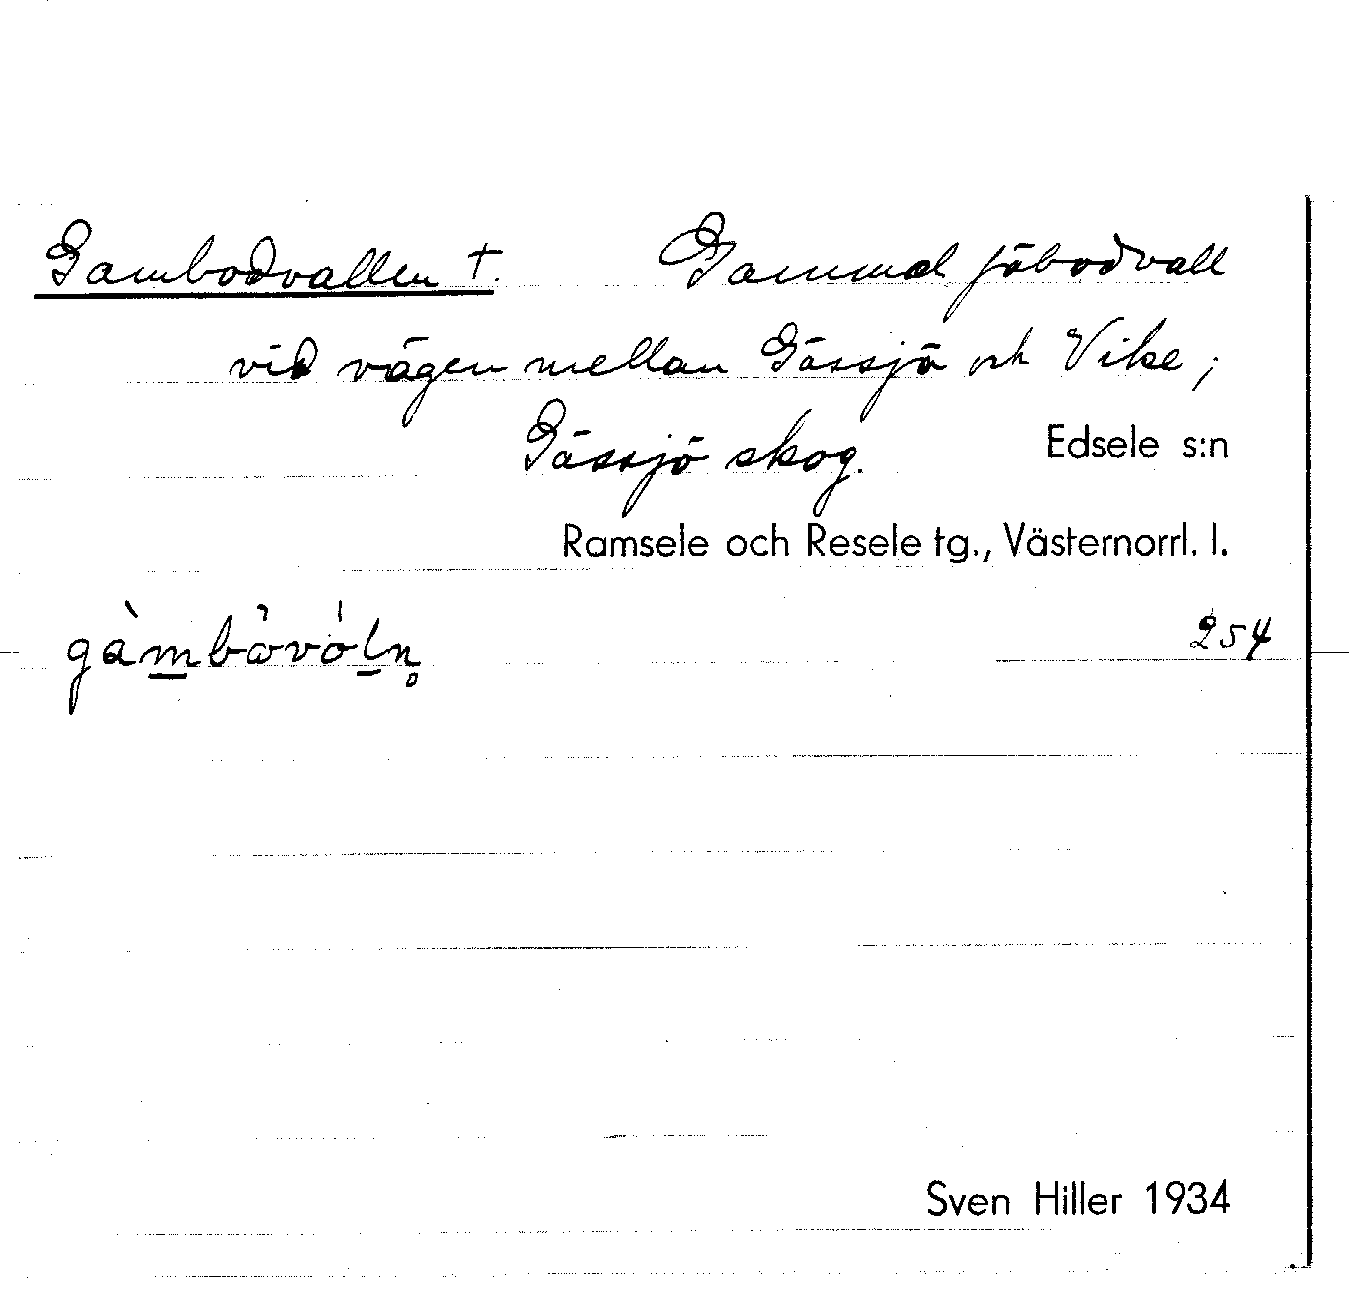 Gambodvallen †. Gammal fäbodvall
vid vägen mellan Gåssjö och Vike;
Gåssjö skog. Edsele s:n
Ramsele och Resele tg., Västernorrl. l.
254
Sven Hiller 1934